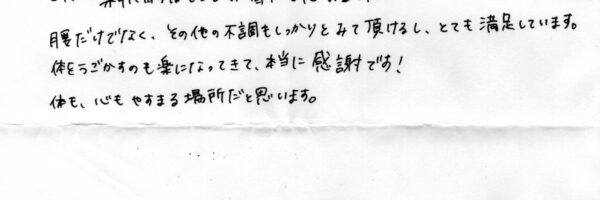 腰だけでなく、その他の不調もしっかりとみて頂けるし、とても満足しています。
体をうごかすのも楽になってきて、本当に感謝です!
体も、心もやすまる場所だと思います。